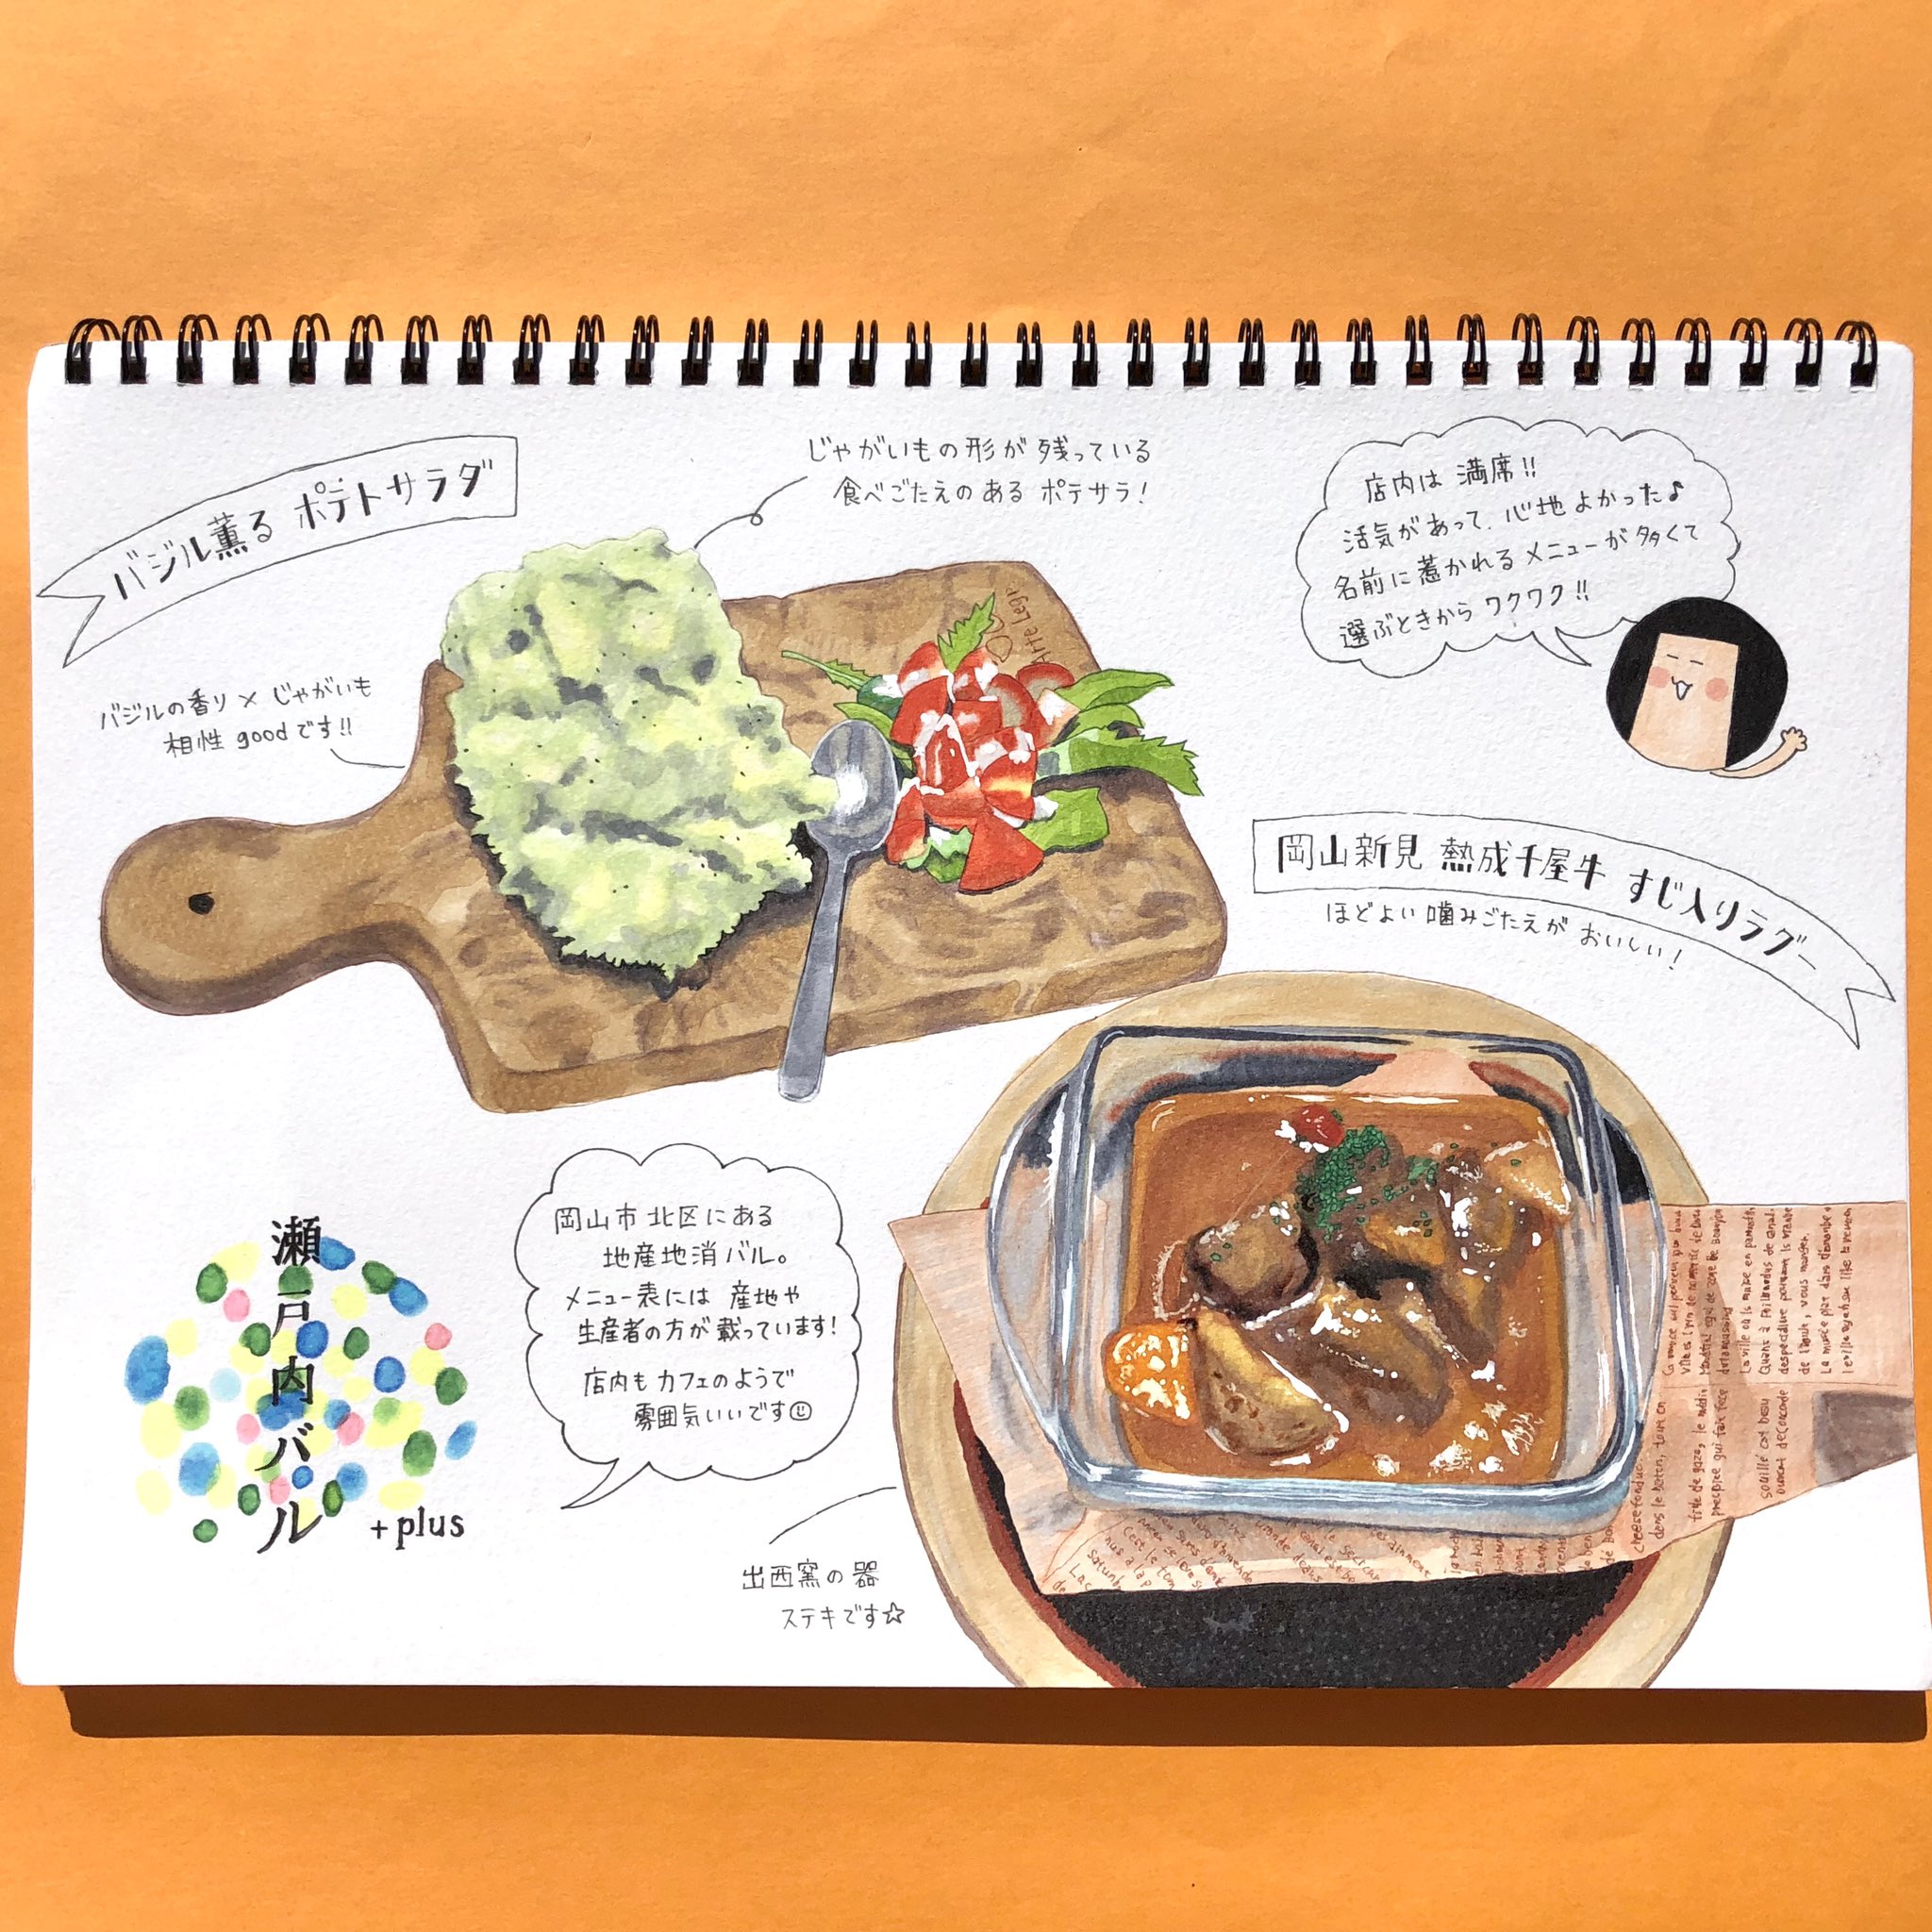 バジル薫る ポテトサラダ
じゃがいもの形が残っている
食べごたえのある ポテサラ!
店内は 満席!!
活気があって、心地よかった♪
名前に惹かれるメニューが多くて
選ぶときから ワクワク!!
バジルの香り×じゃがいも
相性 goodです!!
岡山新見 熱成千屋牛 すじ入りラグー
ほどよい噛みごたえが おいしい!
瀬戸内バル
+plus
岡山市北区にある
地産地消バル。
メニュー表には 産地や
生産者の方が載っています!
店内もカフェのようで
雰囲気いいです☺
出西窯の器
ステキです☆